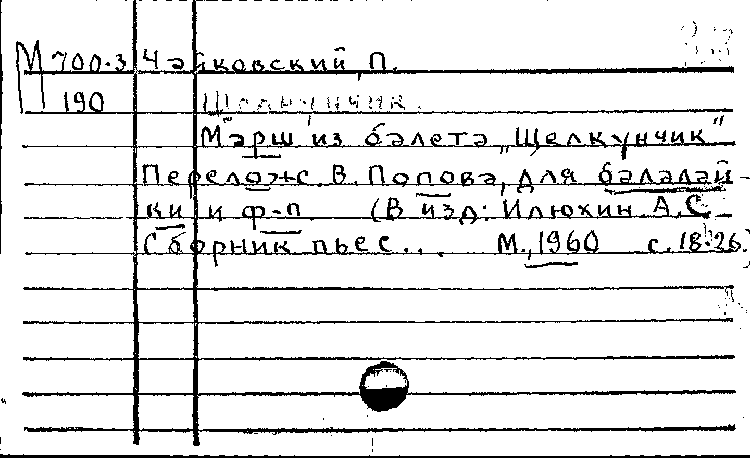 М 700.3 Чайковский, П.
190 Щелкунчик.
Марш из балета „Щелкунчик"
Перелож. В. Попова, для балалай-
ки и ф-п. (В изд: Илюхин А.С.
Сборник пьес... М., 1960 с. 18-26.)